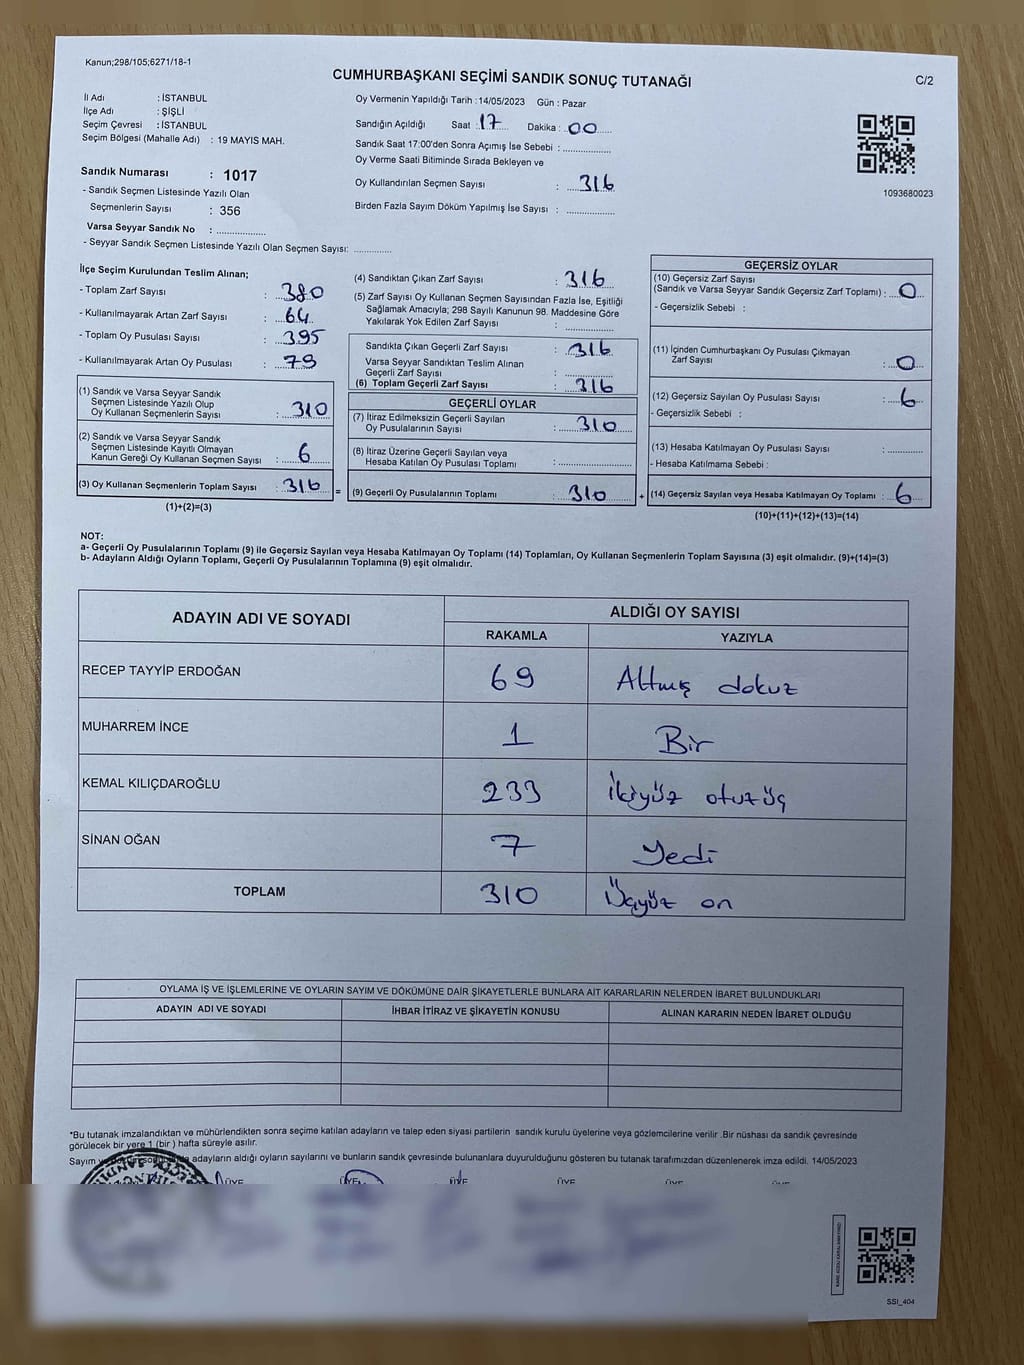 Kanun;298/105;6271/18-1
CUMHURBAŞKANI SEÇİMİ SANDIK SONUÇ TUTANAĞI
C/2
İl Adı : İSTANBUL
İlçe Adı : ŞİŞLİ
Seçim Çevresi : İSTANBUL
Seçim Bölgesi (Mahalle Adı) : 19 MAYIS MAH.
Sandık Numarası : 1017
- Sandık Seçmen Listesinde Yazılı Olan
Seçmenlerin Sayısı : 356
Varsa Seyyar Sandık No : ..................
- Seyyar Sandık Seçmen Listesinde Yazılı Olan Seçmen Sayısı: .............
Oy Vermenin Yapıldığı Tarih :14/05/2023 Gün : Pazar
Sandığın Açıldığı Saat :17 Dakika : 00
Sandık Saat 17:00'den Sonra Açımış İse Sebebi : ................
Oy Verme Saati Bitiminde Sırada Bekleyen ve
Oy Kullandırılan Seçmen Sayısı : 316
Birden Fazla Sayım Döküm Yapılmış İse Sayısı : ................
1093680023
İlçe Seçim Kurulundan Teslim Alınan;
- Toplam Zarf Sayısı : 380
- Kullanılmayarak Artan Zarf Sayısı : 64
- Toplam Oy Pusulası Sayısı : 395
- Kullanılmayarak Artan Oy Pusulası : 79
(1) Sandık ve Varsa Seyyar Sandık
Seçmen Listesinde Yazılı Olup
Oy Kullanan Seçmenlerin Sayısı : 310
(2) Sandık ve Varsa Seyyar Sandık
Seçmen Listesinde Kayıtlı Olmayan
Kanun Gereği Oy Kullanan Seçmen Sayısı : 6
(3) Oy Kullanan Seçmenlerin Toplam Sayısı : 316 =
(1)+(2)=(3)
(4) Sandıktan Çıkan Zarf Sayısı : 316
(5) Zarf Sayısı Oy Kullanan Seçmen Sayısından Fazla İse, Eşitliği
Sağlamak Amacıyla; 298 Sayılı Kanunun 98. Maddesine Göre
Yakılarak Yok Edilen Zarf Sayısı : ................
Sandıkta Çıkan Geçerli Zarf Sayısı : 316
Varsa Seyyar Sandıktan Teslim Alınan
Geçerli Zarf Sayısı : ................
(6) Toplam Geçerli Zarf Sayısı : 316
GEÇERLİ OYLAR
(7) İtiraz Edilmeksizin Geçerli Sayılan
Oy Pusulalarının Sayısı : 310
(8) İtiraz Üzerine Geçerli Sayılan veya
Hesaba Katılan Oy Pusulası Toplamı : ................
(9) Geçerli Oy Pusulalarının Toplamı : 310 +
GEÇERSİZ OYLAR
(10) Geçersiz Zarf Sayısı
(Sandık ve Varsa Seyyar Sandık Geçersiz Zarf Toplamı) : 0
- Geçersizlik Sebebi :
(11) İçinden Cumhurbaşkanı Oy Pusulası Çıkmayan
Zarf Sayısı : 0
(12) Geçersiz Sayılan Oy Pusulası Sayısı : 6
- Geçersizlik Sebebi :
(13) Hesaba Katılmayan Oy Pusulası Sayısı : ............
- Hesaba Katılmama Sebebi :
(14) Geçersiz Sayılan veya Hesaba Katılmayan Oy Toplamı : 6
(10)+(11)+(12)+(13)=(14)
NOT:
a- Geçerli Oy Pusulalarının Toplamı (9) ile Geçersiz Sayılan veya Hesaba Katılmayan Oy Toplamı (14) Toplamları, Oy Kullanan Seçmenlerin Toplam Sayısına (3) eşit olmalıdır. (9)+(14)=(3)
b- Adayların Aldığı Oyların Toplamı, Geçerli Oy Pusulalarının Toplamına (9) eşit olmalıdır.
ADAYIN ADI VE SOYADI ALDIĞI OY SAYISI
RAKAMLA YAZIYLA
RECEP TAYYİP ERDOĞAN 69 Altmış dokuz
MUHARREM İNCE 1 Bir
KEMAL KILIÇDAROĞLU 233 İkiyüz otuzüç
SİNAN OĞAN 7 Yedi
TOPLAM 310 Üçyüz on
OYLAMA İŞ VE İŞLEMLERİNE VE OYLARIN SAYIM VE DÖKÜMÜNE DAİR ŞİKAYETLERLE BUNLARA AİT KARARLARIN NELERDEN İBARET BULUNDUKLARI
ADAYIN ADI VE SOYADI İHBAR İTİRAZ VE ŞİKAYETİN KONUSU ALINAN KARARIN NEDEN İBARET OLDUĞU
*Bu tutanak imzalandıktan ve mühürlendikten sonra seçime katılan adayların ve talep eden siyasi partilerin sandık kurulu üyelerine veya gözlemcilerine verilir .Bir nüshası da sandık çevresinde
görülecek bir yere 1 (bir ) hafta süreyle asılır.
Sayım adayların aldığı oyların sayılarını ve bunların sandık çevresinde bulunanlara duyurulduğunu gösteren bu tutanak tarafımızdan düzenlenerek imza edildi. 14/05/2023
ÜYE ÜYE ÜYE ÜYE ÜYE ÜYE
SSI_404